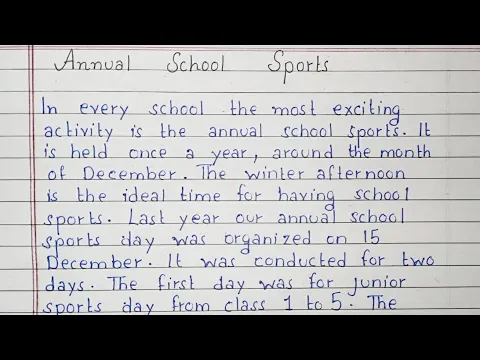 Annual School Sports
In every school the most exciting
activity is the annual school sports. It
is held once a year, around the month
of December. The winter afternoon
is the ideal time for having school
sports. Last year our annual school
sports day was organized on 15
December. It was conducted for two
days. The first day was for junior
sports day from class 1 to 5. The